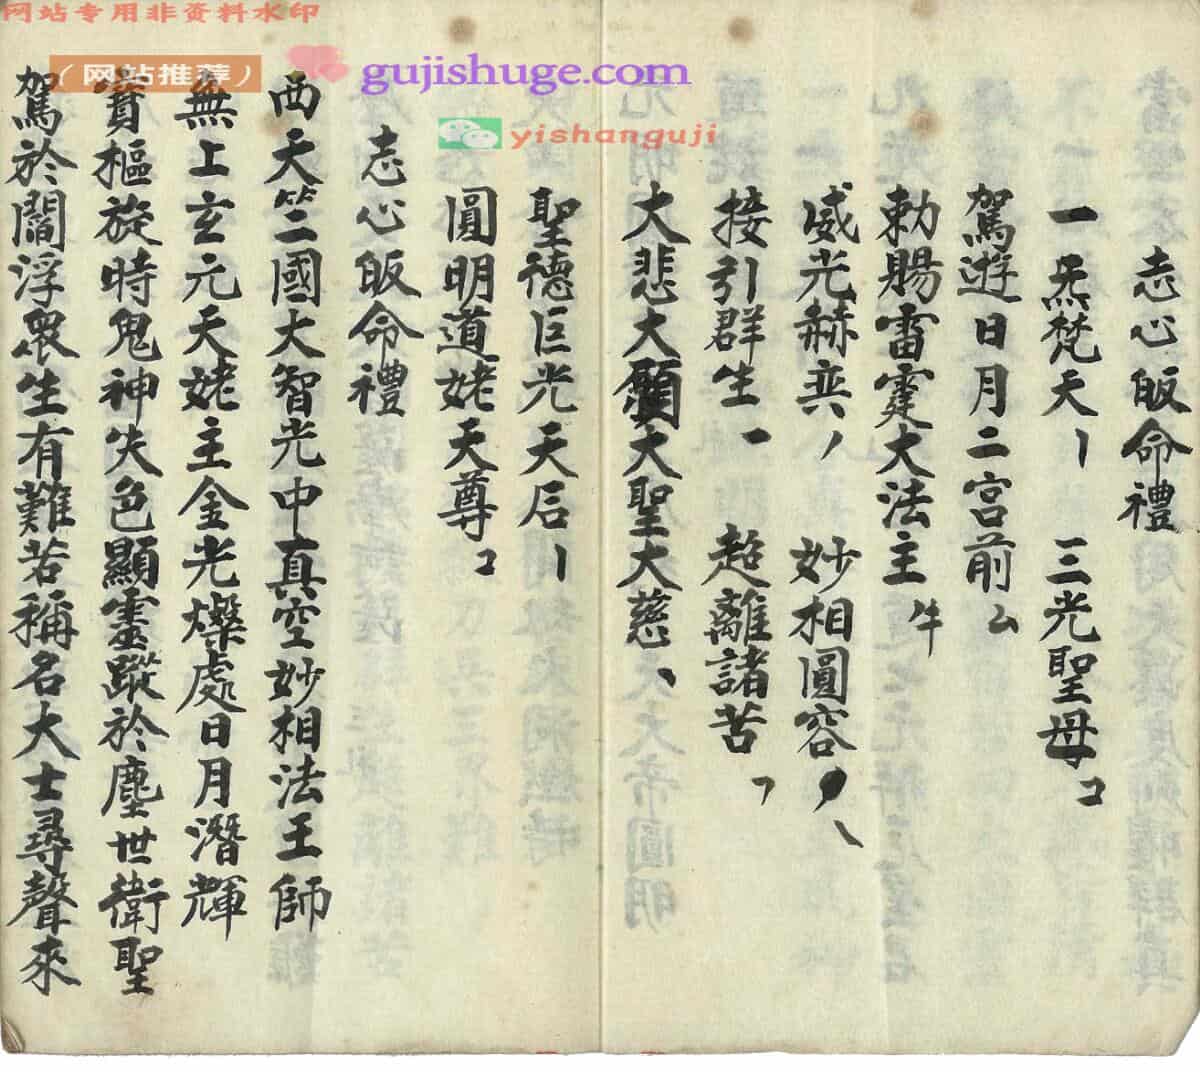 网站专用非资料水印
（网站推荐）
gujishuge.com
yishanguji
志心皈命禮
一炁梵天 三光聖母
駕遊日月二宮前
勅賜雷霆大法主
威光赫奕 妙相圓容
接引群生 超離諸苦
大悲大願大聖大慈
聖德巨光天后
圓明道姥天尊
志心皈命禮
西天竺國大智光中真空妙相法王師
無上玄元天姥主金光燦處日月潛輝
寶樞旋時鬼神失色顯靈蹤於塵世衛聖
駕於閻浮眾生有難若稱名大士尋聲來